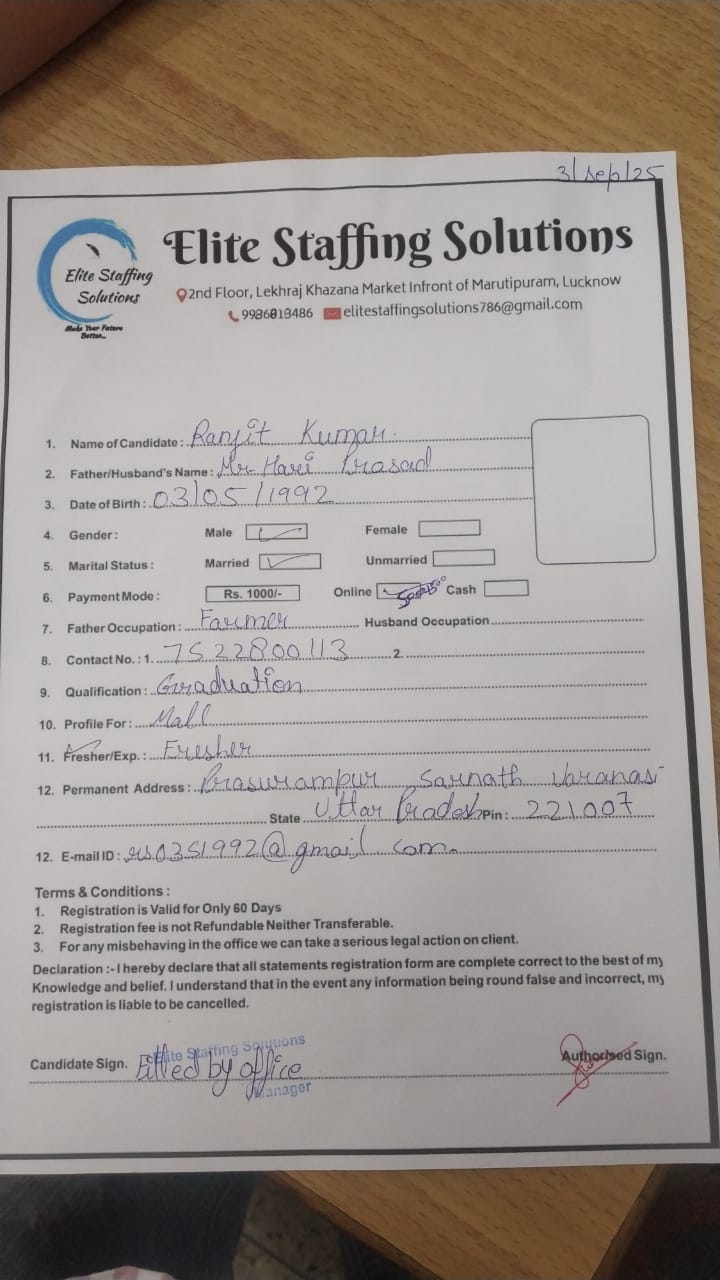 3/Sep/25
Elite Staffing Solutions
Elite Staffing
Solutions
Make Your Future
Better...
2nd Floor, Lekhraj Khazana Market Infront of Marutipuram, Lucknow
elitestaffingsolutions786@gmail.com
1. Name of Candidate : Ranjit Kumar.
2. Father/Husband's Name : Mr. Hari Prasad
3. Date of Birth : 03/05/1992
4. Gender : Male Female
5. Marital Status : Married Unmarried
6. Payment Mode : Rs. 1000/- Online Cash
7. Father Occupation : Farmer Husband Occupation
8. Contact No. : 1. 7522800113 2.
9. Qualification : Graduation
10. Profile For : Mall
11. Fresher/Exp. : Fresher
12. Permanent Address : Prasurampur Sarnath Varanasi
State Uttar Pradesh Pin : 221007
12. E-mail ID : @gmail.com.
Terms & Conditions :
1. Registration is Valid for Only 60 Days
2. Registration fee is not Refundable Neither Transferable.
3. For any misbehaving in the office we can take a serious legal action on client.
Declaration :- I hereby declare that all statements registration form are complete correct to the best of my
Knowledge and belief. I understand that in the event any information being round false and incorrect, my
registration is liable to be cancelled.
Elite Staffing Solutions
Candidate Sign. Filled by office Authorised Sign.
Manager